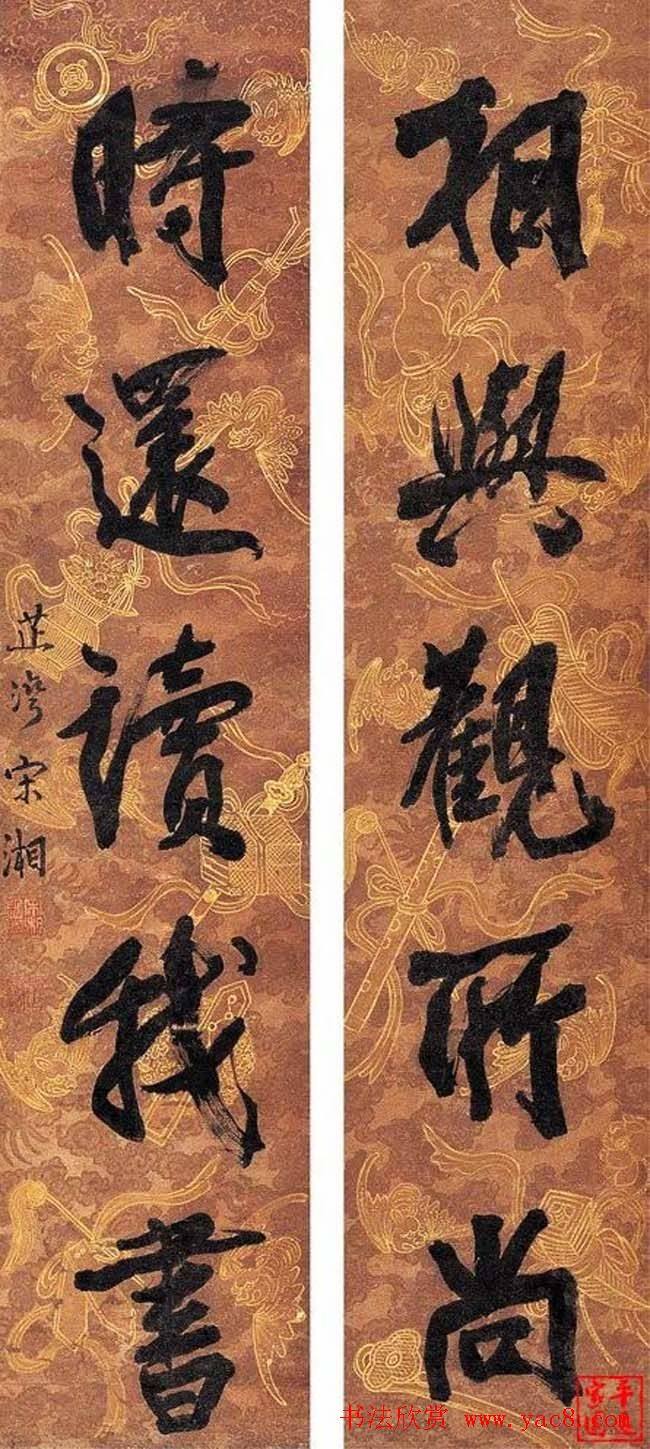 相與觀所尚
時還讀我書
芷灣宋湘
书法欣赏 www.yac8.com